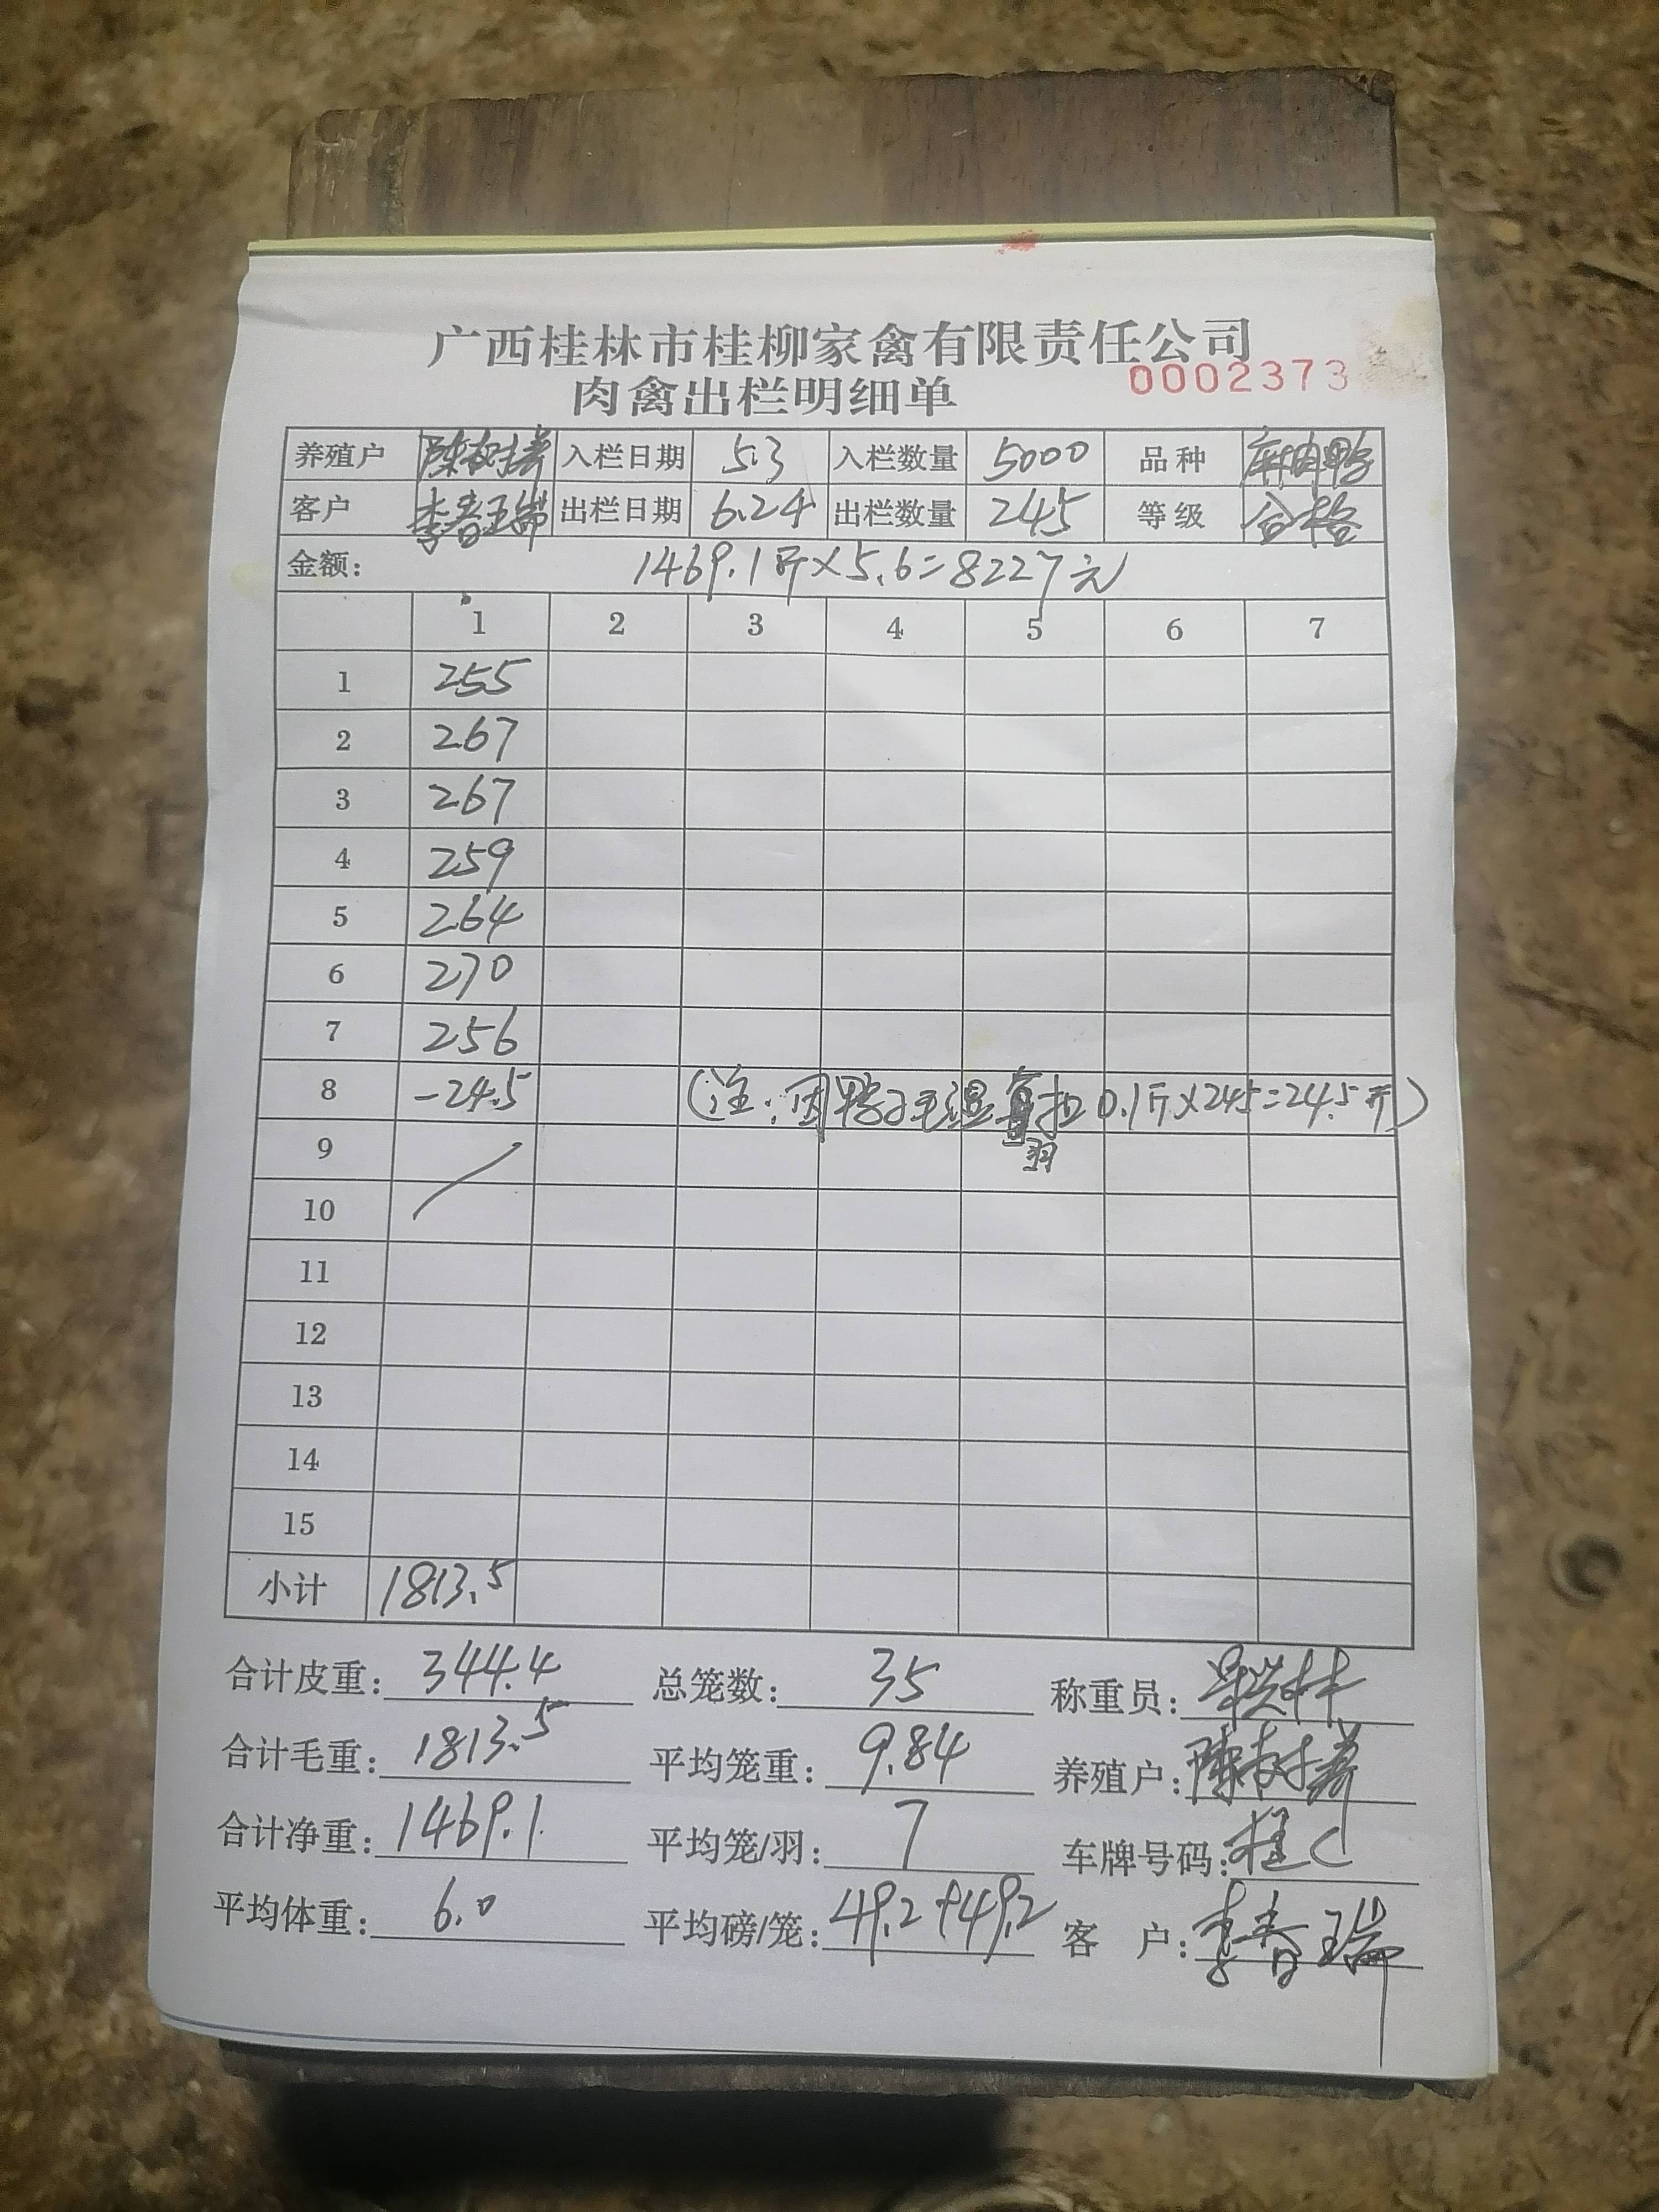 广西桂林市桂柳家禽有限责任公司
肉禽出栏明细单 0002373
养殖户 陈 入栏日期 5.3 入栏数量 5000 品种 麻肉鸭
客户 李春瑞 出栏日期 6.24 出栏数量 245 等级 合格
金额: 1469.1斤×5.6=8227元
1 2 3 4 5 6 7
1 255
2 267
3 267
4 259
5 264
6 270
7 256
8 -24.5 (注:因鸭子毛湿每扣0.1斤×245=24.5斤)
羽
9
10
11
12
13
14
15
小计 1813.5
合计皮重: 344.4 总笼数: 35 称重员:
合计毛重: 1813.5 平均笼重: 9.84 养殖户: 陈
合计净重: 1469.1 平均笼/羽: 7 车牌号码: 桂C
平均体重: 6.0 平均磅/笼: 49.2+49.2 客 户: 李春瑞